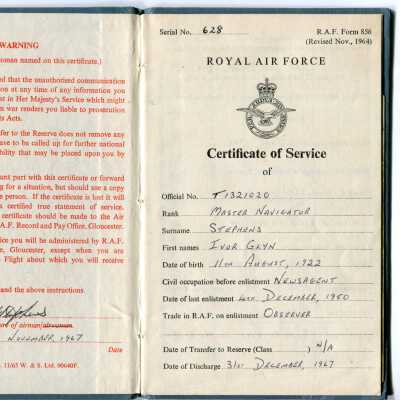 WARNING
woman named on this certificate.)
d that the unauthorised communication
tion at any time of any information you
st in Her Majesty's Service which might
war renders you liable to prosecution
ts Acts.
sfer to the Reserve does not remove any
use to be called up for further national
bility that may be placed upon you by
ant part with this certificate or forward
ng for a situation, but should use a copy
e person. If the certificate is lost it will
certified true statement of service.
certificate should be made to the Air
A.F. Record and Pay Office, Gloucester.
ice you will be administered by R.A.F.
e, Gloucester, except when you are
Flight about which you will receive
nd the above instructions.
Stephens
ture of airman/airwoman
NOVEMBER, 1967
Date
11/65 W. & S. Ltd. 90640F.
Serial No. 628
R.A.F. Form 856
(Revised Nov., 1964)
ROYAL AIR FORCE
Certificate of Service
of
Official No. T1321020
Rank MASTER NAVIGATOR
Surname STEPHENS
First names IVOR GLYN
Date of birth 11TH AUGUST, 1922
Civil occupation before enlistment NEWSAGENT
Date of last enlistment 4TH DECEMBER, 1950
Trade in R.A.F. on enlistment OBSERVER
Date of Transfer to Reserve (Class ) N/A
Date of Discharge 31ST DECEMBER, 1967